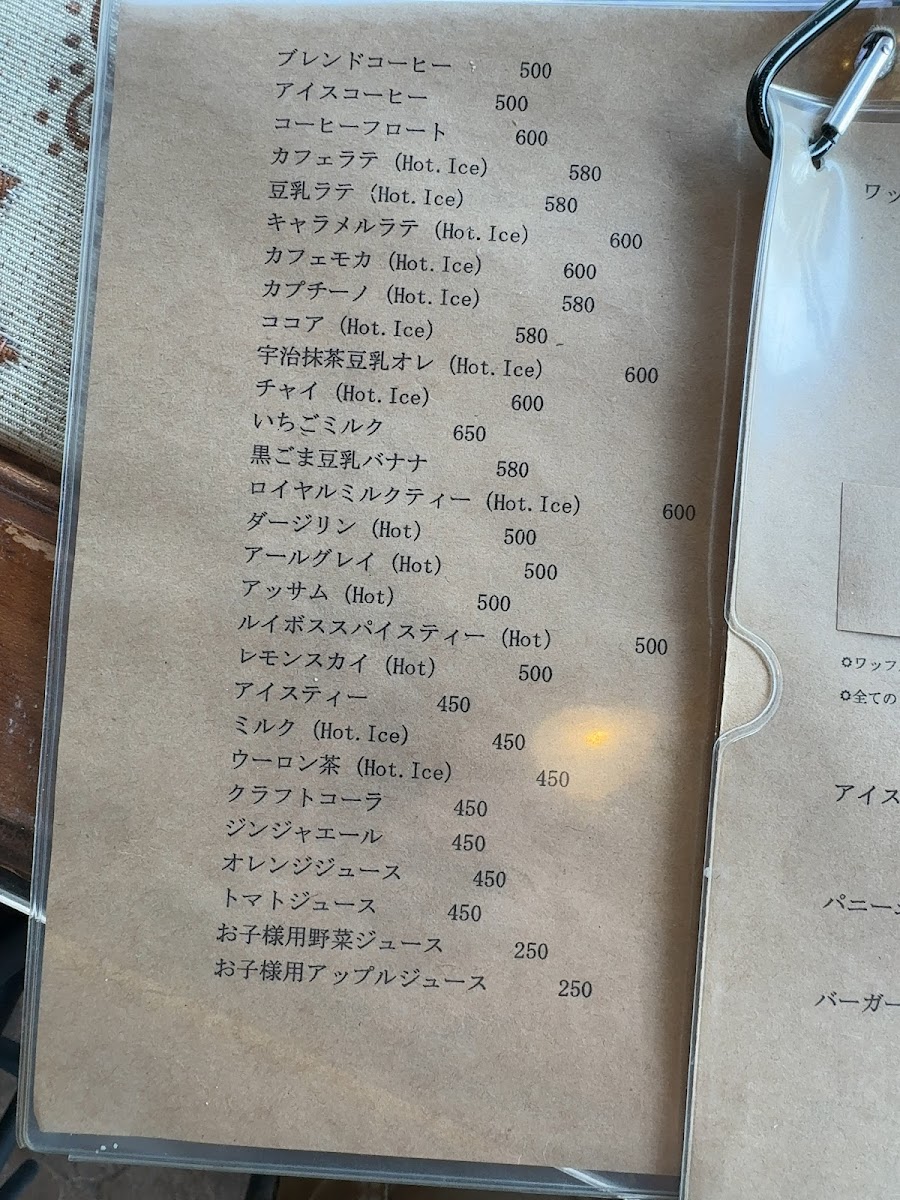 ブレンドコーヒー 500
アイスコーヒー 500
コーヒーフロート 600
カフェラテ (Hot.Ice) 580
豆乳ラテ (Hot.Ice) 580
キャラメルラテ (Hot.Ice) 600
カフェモカ (Hot.Ice) 600
カプチーノ (Hot.Ice) 580
ココア (Hot.Ice) 580
宇治抹茶豆乳オレ (Hot.Ice) 600
チャイ (Hot.Ice) 600
いちごミルク 650
黒ごま豆乳バナナ 580
ロイヤルミルクティー (Hot.Ice) 600
ダージリン (Hot) 500
アールグレイ (Hot) 500
アッサム (Hot) 500
ルイボススパイスティー (Hot) 500
レモンスカイ (Hot) 500
アイスティー 450
ミルク (Hot.Ice) 450
ウーロン茶 (Hot.Ice) 450
クラフトコーラ 450
ジンジャエール 450
オレンジジュース 450
トマトジュース 450
お子様用野菜ジュース 250
お子様用アップルジュース 250
ワッ
✿ワッフ
✿全ての
アイス
パニー
バーガー